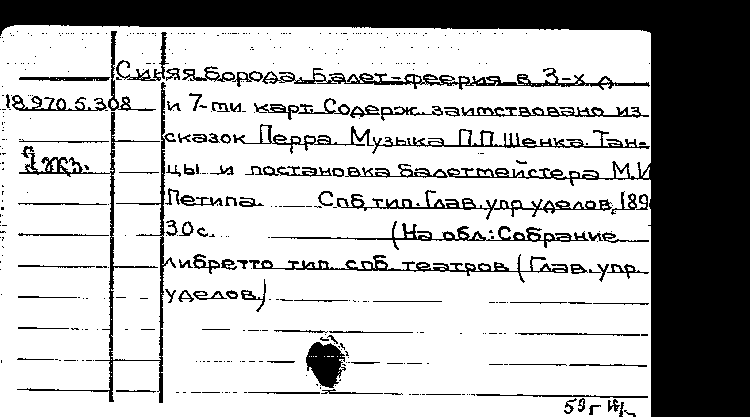 Синяя борода. Балет-феерия в 3-х д
18.970.5.308 и 7-ти карт. Содерж. заимствовано из
сказок Перра. Музыка П.П.Шенка. Тан-
цы и постановка балетмейстера М.И
Петипа. Спб, тип. Глав. упр уделов, 189
30с. (На обл.: Собрание
либретто тип. спб. театров (Глав. упр.
уделов.)
59г